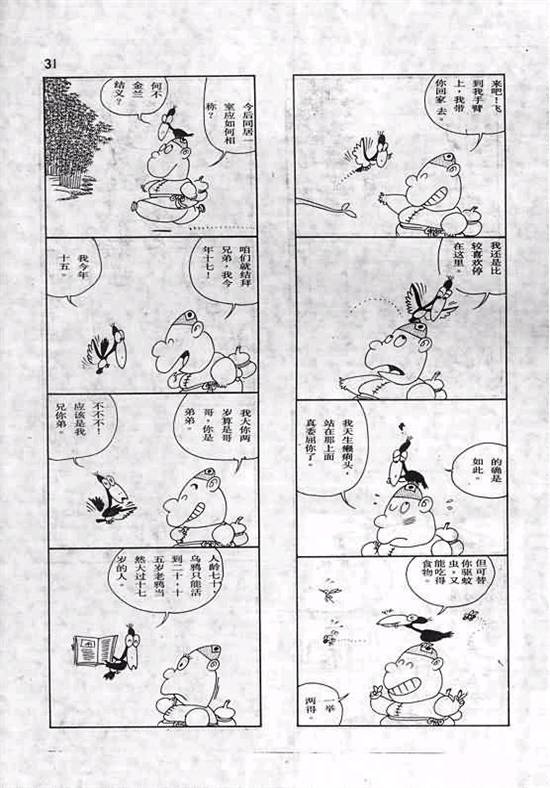 31
来吧！飞
到我手臂
上，我带
你回家去。
我还是比
较喜欢停
在这里。
的确是
如此。
我天生癞痢头，
站在那上面
真委屈你了。
但可替
你驱蚊
虫，又
能吃得
食物。
一举
两得。
今后同居一
室应如何相
称？
何不
金兰
结义？
咱们就结拜
兄弟，我今
年十七！
我今年
十五。
我大你两
岁算是哥
哥，你是
弟弟。
不不不！
应该是我
兄你弟。
人龄七十，
乌鸦只能活
到二十，十
五岁老鸦当
然大过十七
岁的人。